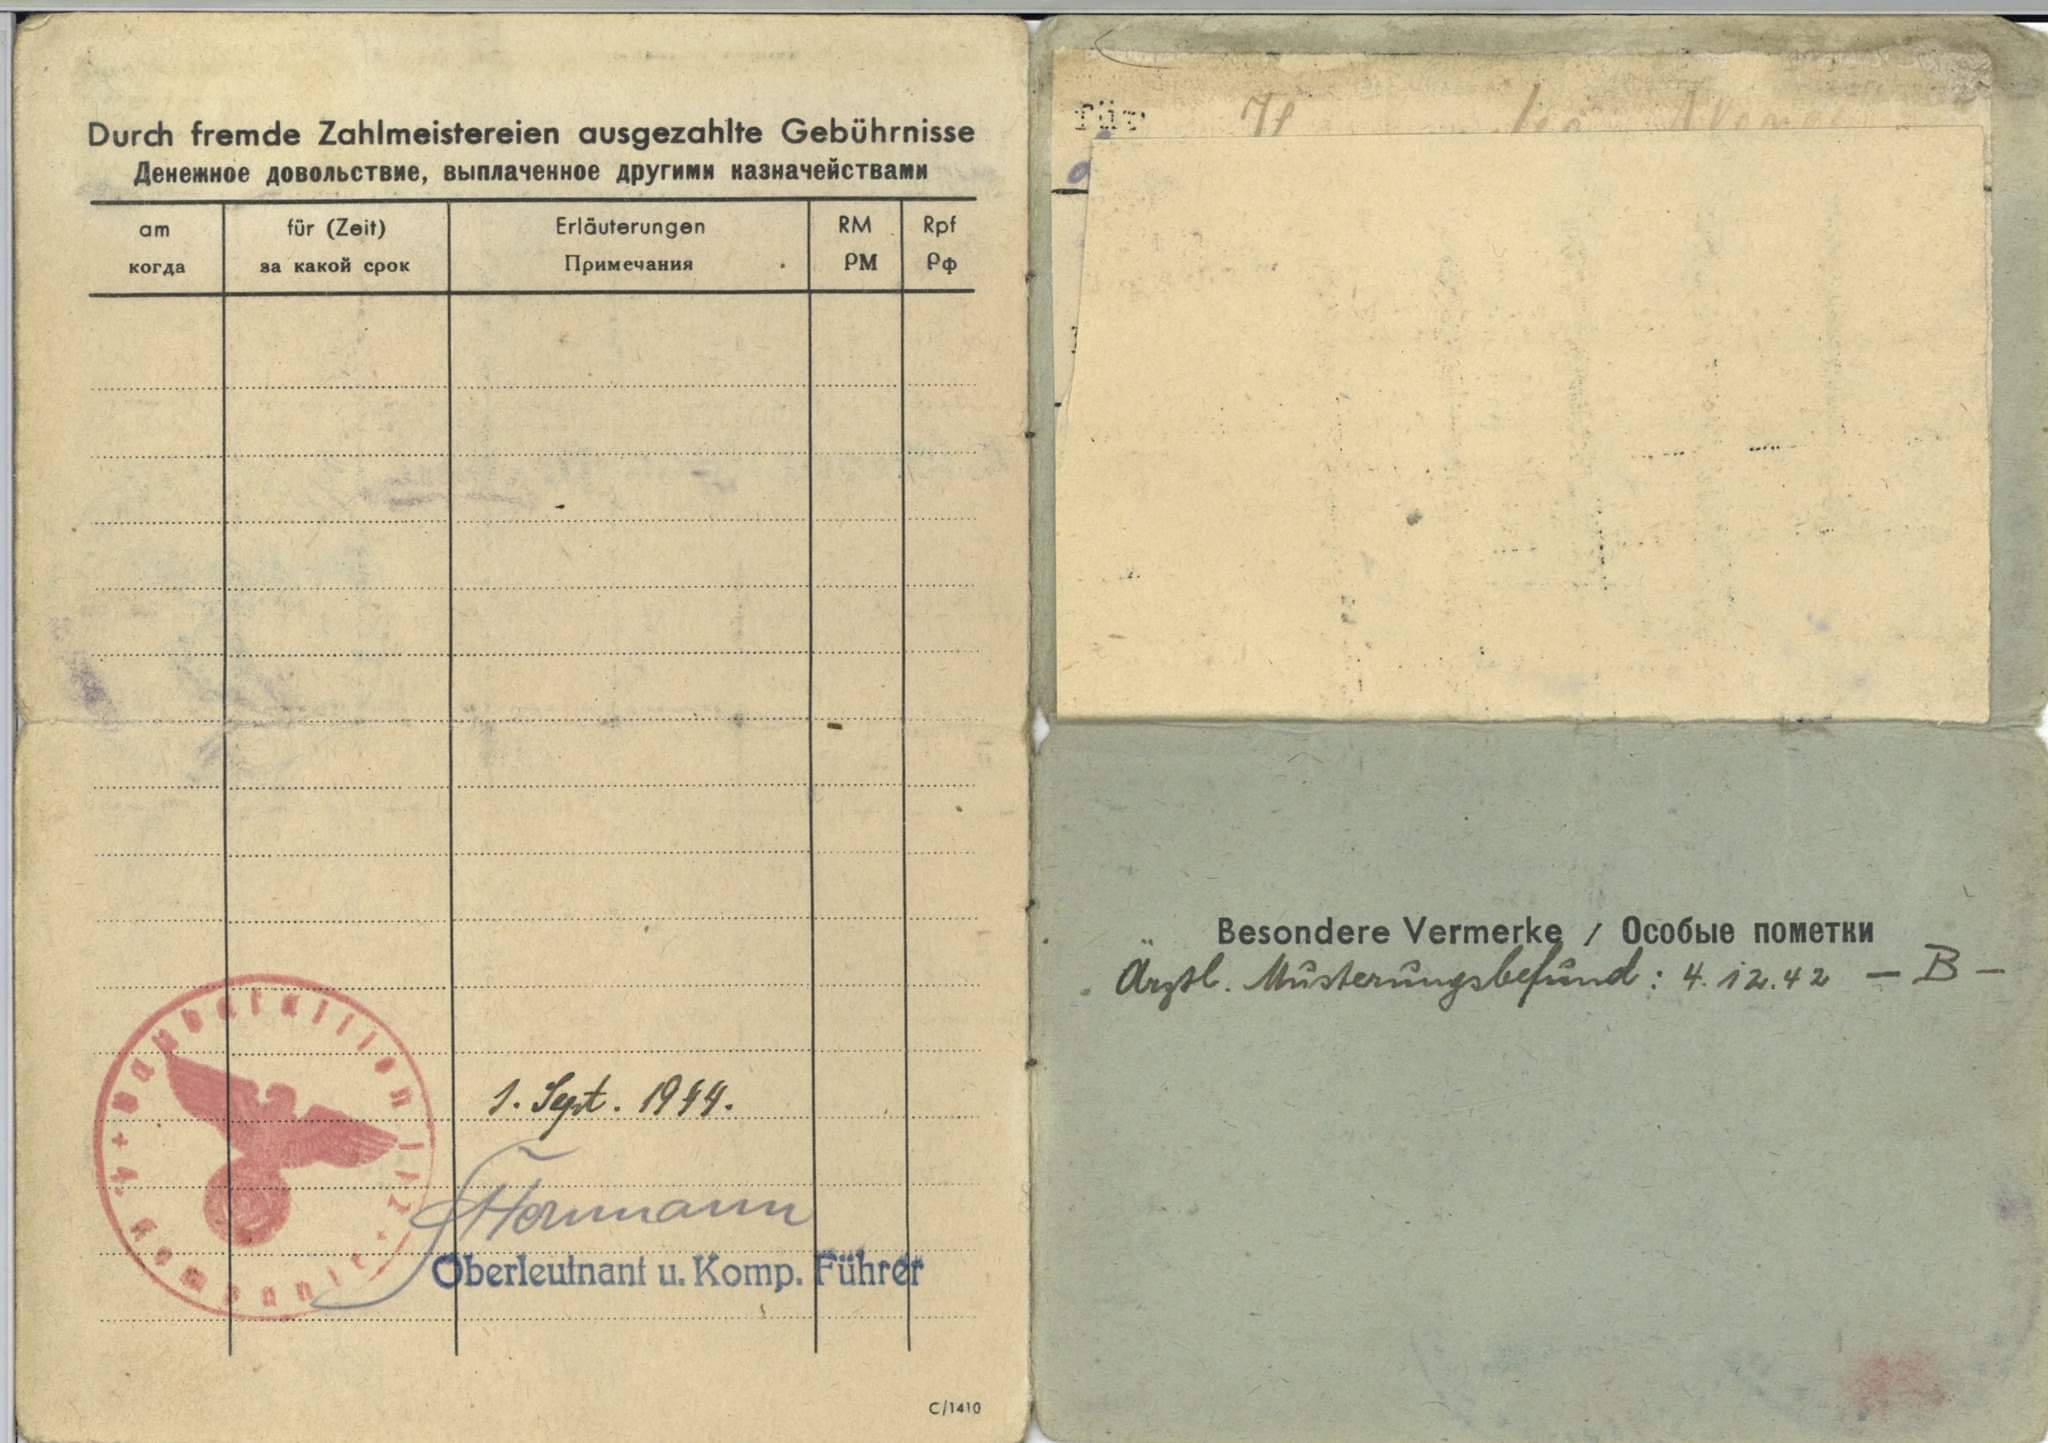 Durch fremde Zahlmeistereien ausgezahlte Gebührnisse
Денежное довольствие, выплаченное другими казначействами
am für (Zeit) Erläuterungen RM Rpf
когда за какой срок Примечания РМ Рф
1. Sept. 1944.
Oberleutnant u. Komp. Führer
4. Kompanie
C/1410
für
Besondere Vermerke / Особые пометки
Ärztl. Musterungsbefund: 4.12.42 – B –